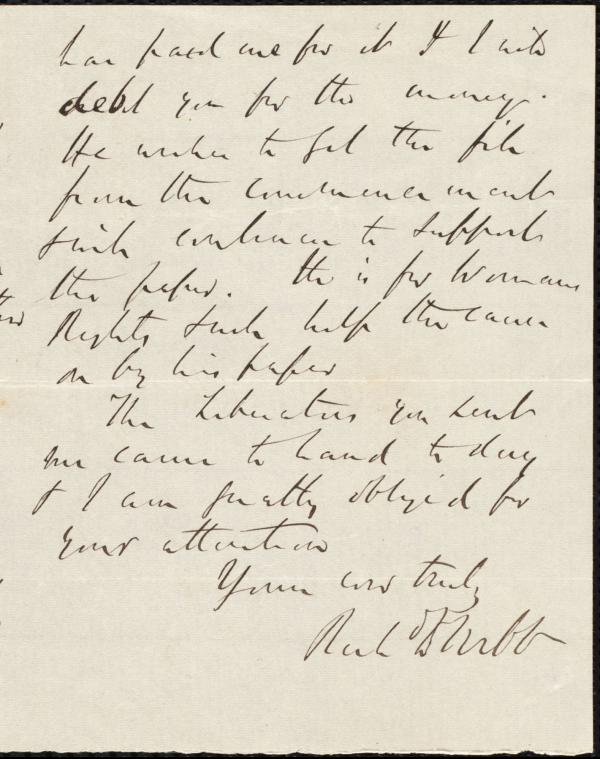 has paid me for it & I will
debit you for the money.
He wishes to get the file
from the commencement
& will continue to support
the paper. He is for Womans
Rights & will help the cause
on by his paper
The Liberators you sent
me came to hand to day
& I am greatly obliged for
your attention
Yours ever truly
Rich D Webb